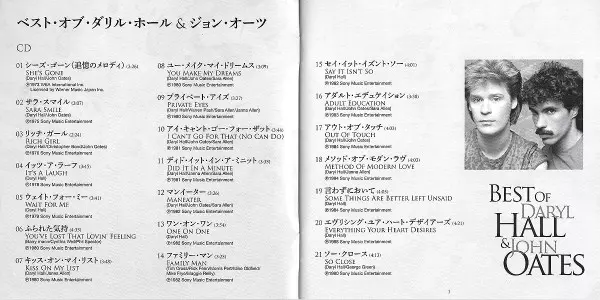 ベスト・オブ・ダリル・ホール & ジョン・オーツ
CD
01 シーズ・ゴーン(追憶のメロディ) (3:26)
SHE'S GONE
(Daryl Hall/John Oates)
Licensed by Warner Music Japan Inc.
02 サラ・スマイル (3:07)
SARA SMILE
(Daryl Hall/John Oates)
℗1975 Sony Music Entertainment
03 リッチ・ガール (2:24)
RICH GIRL
(Daryl Hall)
℗1976 Sony Music Entertainment
04 イッツ・ア・ラーフ
IT'S A LAUGH
(Daryl Hall)
℗1978 Sony Music Entertainment
05 ウェイト・フォー・ミー
WAIT FOR ME
(Daryl Hall)
℗1979 Sony Music Entertainment
06 ふられた気持
YOU'VE LOST THAT LOVIN' FEELING
℗1980 Sony Music Entertainment
07 キッス・オン・マイ・リスト
KISS ON MY LIST
(Daryl Hall/Janna Allen)
℗1980 Sony Music Entertainment
08 ユー・メイク・マイ・ドリームス (3:09)
YOU MAKE MY DREAMS
(Daryl Hall/John Oates/Sara Allen)
℗1980 Sony Music Entertainment
09 プライベート・アイズ
PRIVATE EYES
℗1981 Sony Music Entertainment
10 アイ・キャント・ゴー・フォー・ザット
I CAN'T GO FOR THAT (NO CAN DO)
(Daryl Hall/John Oates/Sara Allen)
℗1981 Sony Music Entertainment
11 ディド・イット・イン・ア・ミニット
DID IT IN A MINUTE
℗1981 Sony Music Entertainment
12 マンイーター (3:26)
MANEATER
(Daryl Hall/John Oates/Sara Allen)
℗1982 Sony Music Entertainment
13 ワン・オン・ワン
ONE ON ONE
(Daryl Hall)
℗1982 Sony Music Entertainment
14 ファミリー・マン
FAMILY MAN
℗1982 Sony Music Entertainment
15 セイ・イット・イズント・ソー (4:01)
SAY IT ISN'T SO
(Daryl Hall)
℗1983 Sony Music Entertainment
16 アダルト・エデュケイション
ADULT EDUCATION
(Daryl Hall/John Oates/Sara Allen)
℗1983 Sony Music Entertainment
17 アウト・オブ・タッチ
OUT OF TOUCH
(Daryl Hall/John Oates)
℗1984 Sony Music Entertainment
18 メソッド・オブ・モダン・ラヴ
METHOD OF MODERN LOVE
(Daryl Hall/Janna Allen)
℗1984 Sony Music Entertainment
19 言わずにおいて (4:05)
SOME THINGS ARE BETTER LEFT UNSAID
(Daryl Hall)
℗1984 Sony Music Entertainment
20 エヴリシング・ユア・ハート・デザイアーズ (4:21)
EVERYTHING YOUR HEART DESIRES
(Daryl Hall)
21 ソー・クロース
SO CLOSE
(Daryl Hall/George Green)
BEST OF
DARYL
HALL
& JOHN
OATES
7